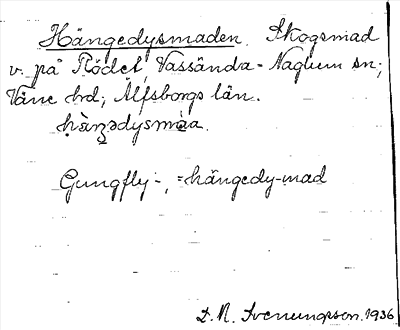 Hängedysmaden. Skogsmad
v. på Flödet, Vassända-Naglum sn;
Väne hrd; Älfsborgs län.
hàŋʒədysmàa.
Gungfly-, = hängedy-mad
D. N. Svenungsson. 1936.